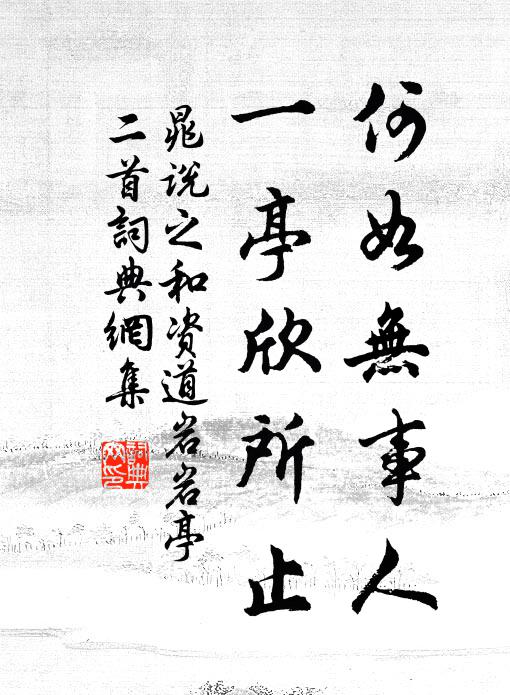 何如無事人
一亭欣所止
晁说之和资道岩岩亭
二首詞典網集
詞典